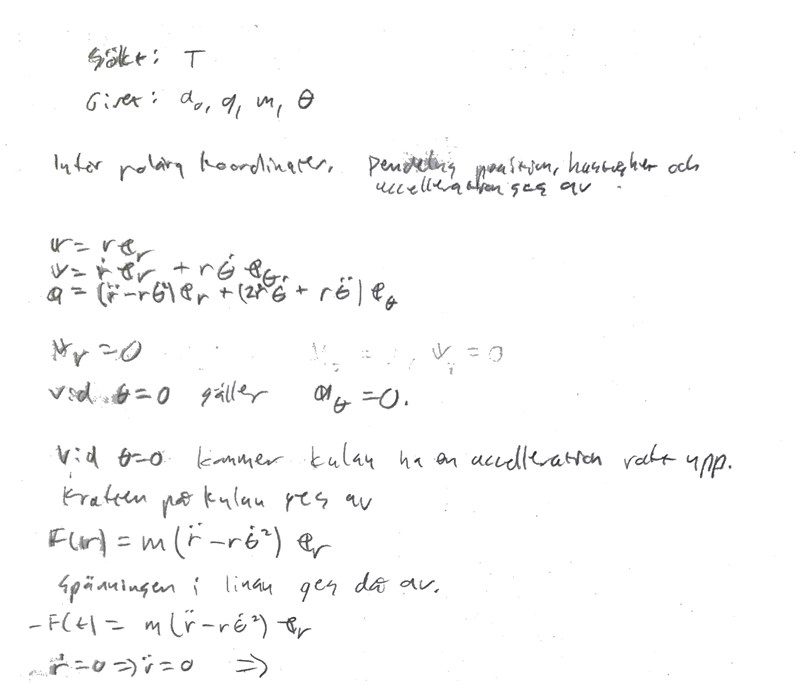 Sökt: T
Givet: a₀, g, m, θ
Inför polära koordinater. Pendelns position, hastighet och
accelleration ges av
r = r e_r
v = ṙ e_r + r θ̇ e_θ.
a = (r̈ - r θ̇²) e_r + (2ṙ θ̇ + r θ̈) e_θ
v_r = 0
= 0
vid θ = 0 gäller a_θ = 0.
Vid θ=0 kommer kulan ha en accelleration rakt upp.
Kraften på kulan ges av
F(r) = m (r̈ - r θ̇²) e_r
Spänningen i linan ges då av.
-F(t) = m (r̈ - r θ̇²) e_r
ṙ = 0 ⇒ r̈ = 0 ⇒